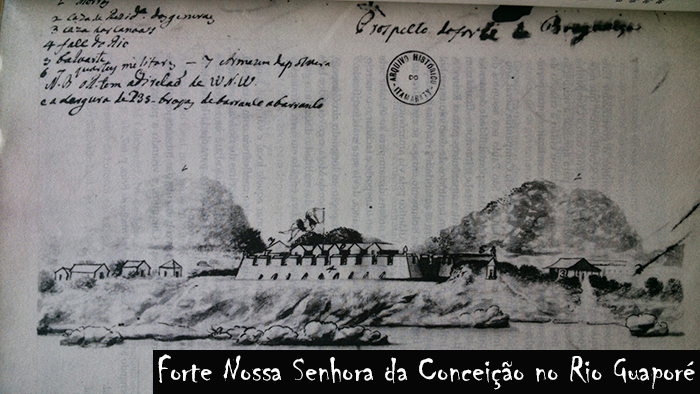 1 Morros
2 Caza de
3 caza das canoas
4 fall do Rio
5 baluarte
6 7 quarteis militares — 7 Armazem de polvora
N.B. o Rio tem a Direlaõ de W.N.W.
e a largura de 235 braças de barranco a barranco
Prospecto do forte de Bragança
ARQUIVO HISTORICO
DO
ITAMARATY
Forte Nossa Senhora da Conceição no Rio Guaporé